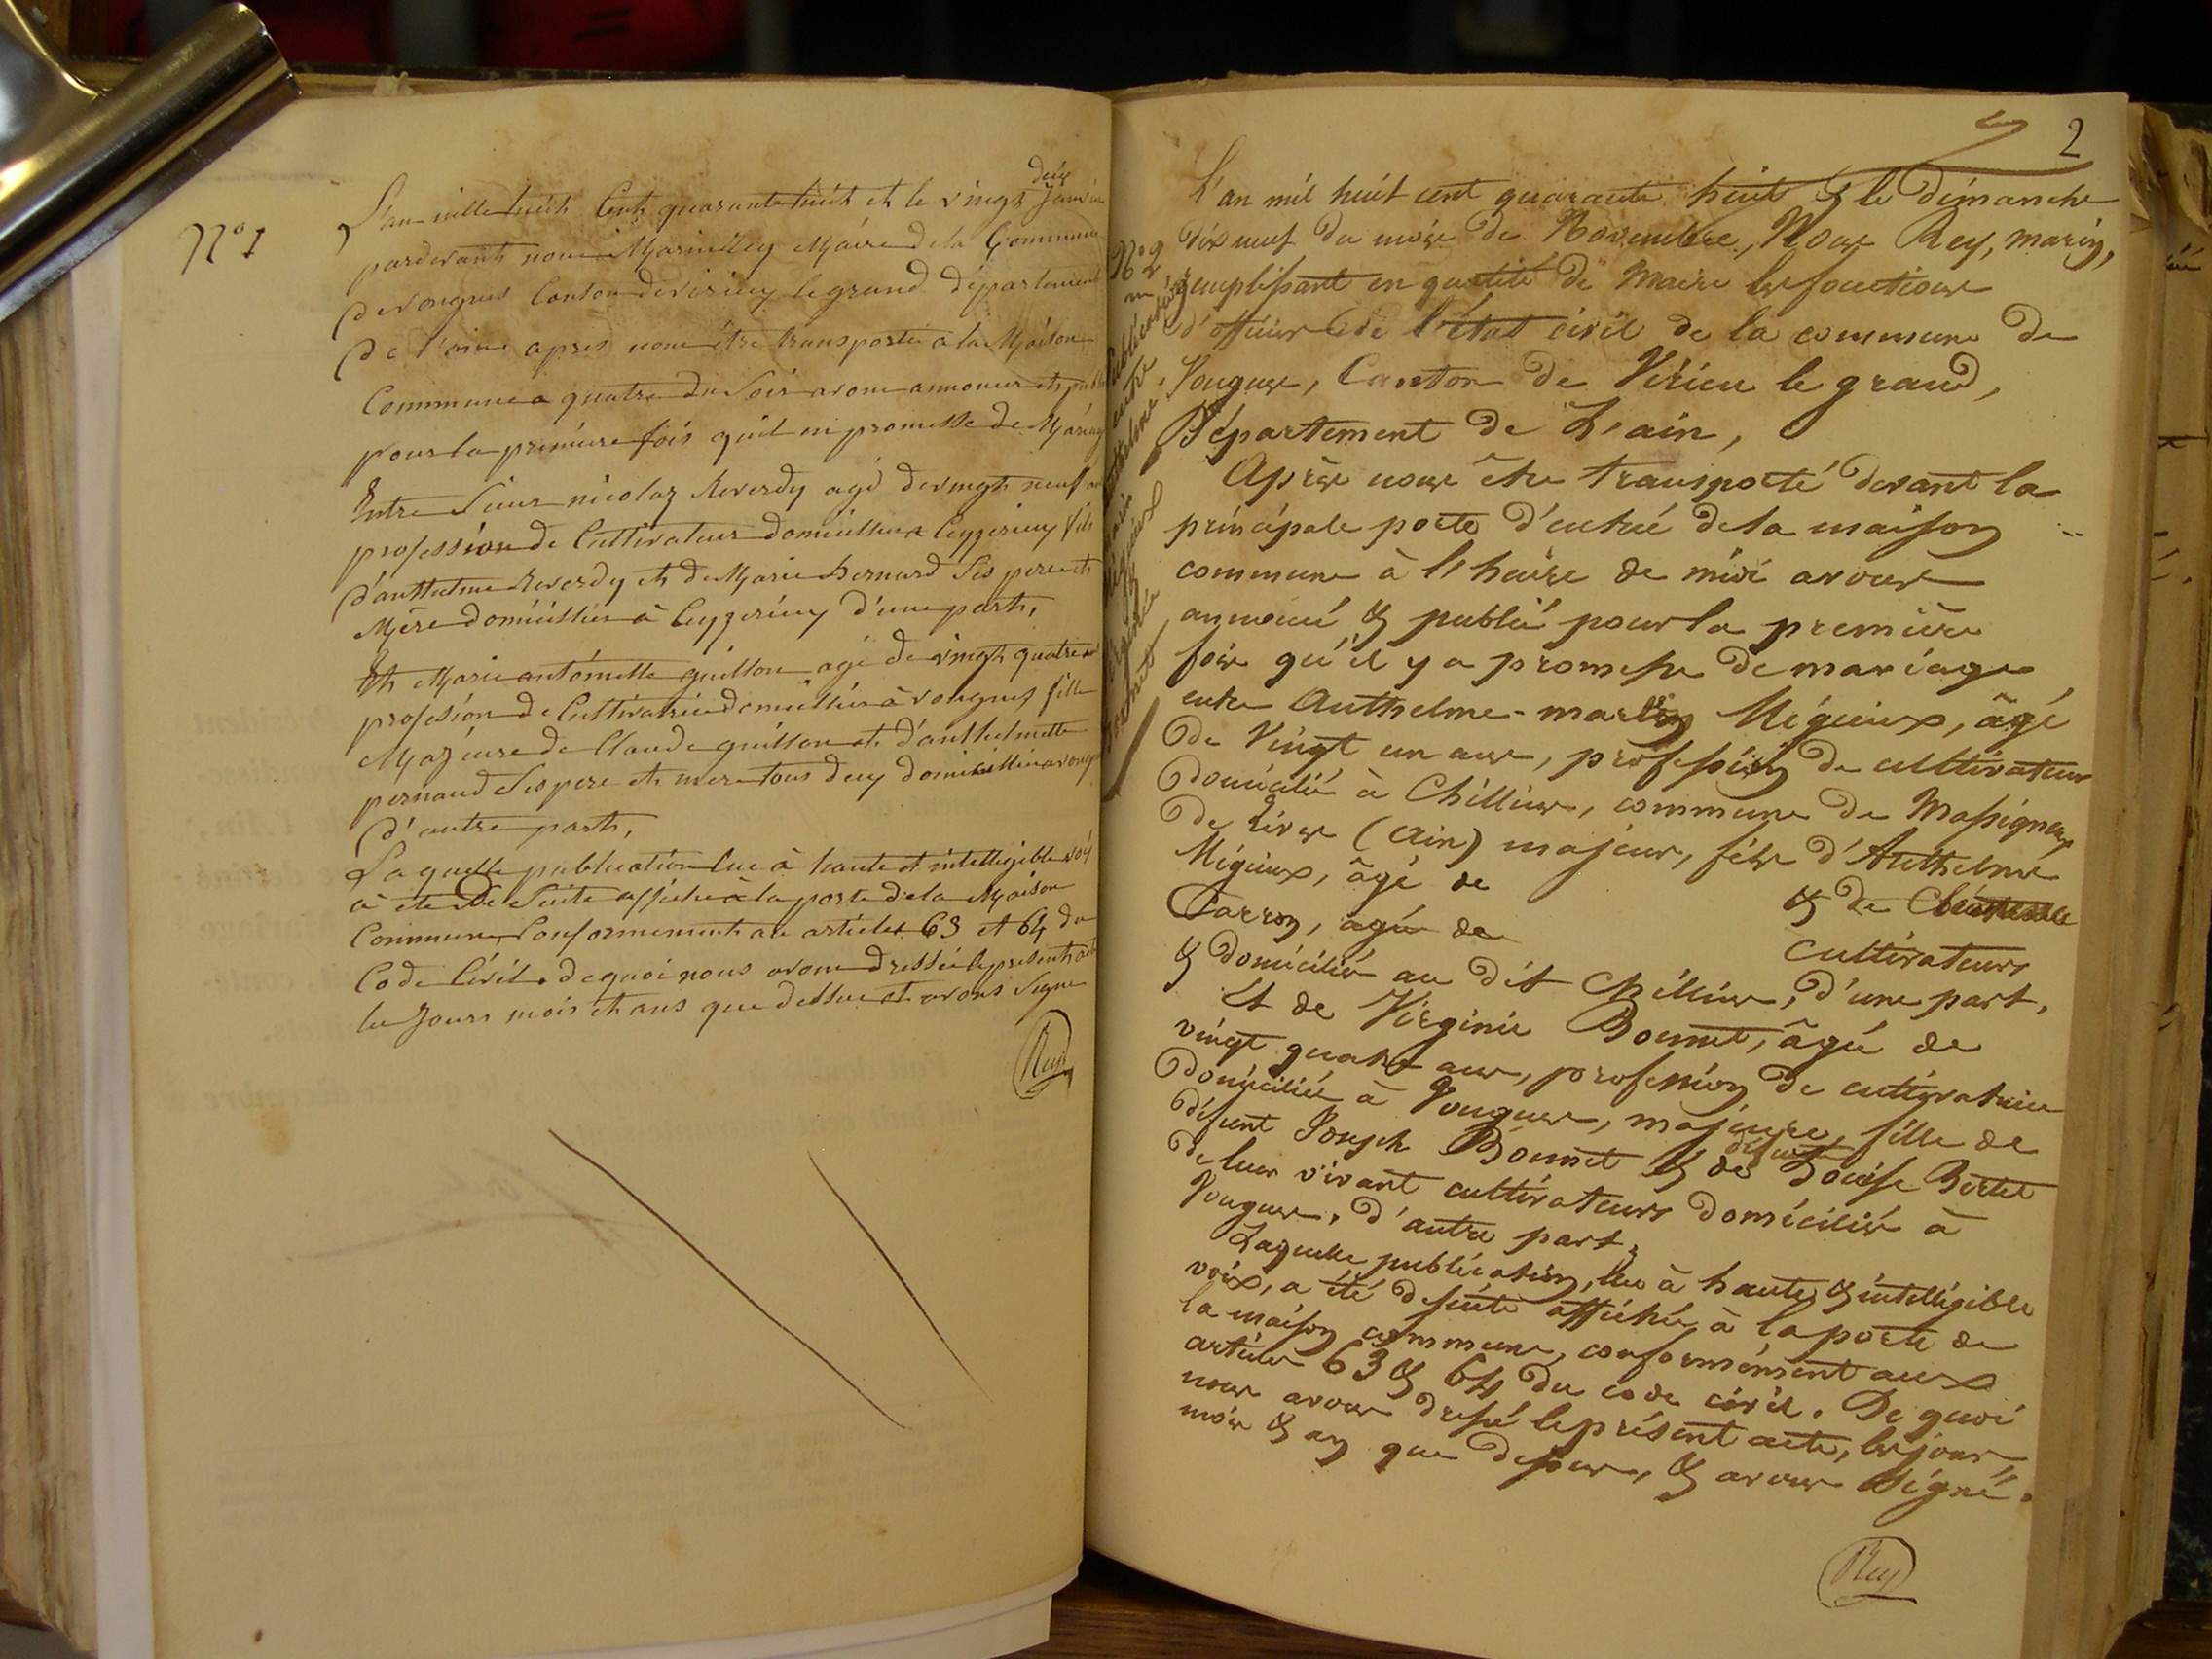 N° 1
L'an mille huit Cent quarante huit et le vingt deux Janvier
pardevant nous Marin Rey Maire de la Commune
de vongnes Canton de virieu le grand département
de l'ain apres nous être transporté a la Maison
Commune a quatre du Soir avons annoncer et publié
pour la premiere fois quil un promesse de Mariag
Entre Sieur nicolaz Reverdy agé de vingt neuf an
profession de Cultivateur domicillier a Ceyzerieu fils
d'anthelme Reverdy et de Marie Bernard Ses pere et
Mère domicilliés à Ceyzerieu d'une part,
Et Marie antoinette guillon agé de vingt quatre
profession de Cultivatrice domicilliée à vongnes fille
Majeure de Claude guillon et d'anthelmette
pernaud Ses pere et mere tous deux domicillié a vongne
d'autre part,
Laquelle publication lue à haute et intelligible voi
à éte de Suite affichée à la porte de la Maison
Commune, Conformement au articles 63 et 64 du
Code Civil. de quoi nous avons dressée le present act
les Jours mois et ans que dessus et avons Signe
Rey
2
N° 2
L'an mil huit cent quarante huit & le dimanche
dix neuf du mois de Novembre, Nous Rey, marin,
remplissant en qualité de Maire les fonctions
d'officier de l'état civil de la commune de
Vongnes, Canton de Virieu le grand,
Département de L'ain,
Après nous être transporté devant la
principale porte d'entrée de la maison
commune à l'heure de midi avons
annoncé & publié pour la première
fois qu'il y a promesse de mariage
entre Anthelme-martin Mégieux, âgé
de Vingt un ans, profession de cultivateur
domicilié à Chillieu, commune de Massignieu
de Rives (Ain) majeur, fils d'Anthelme
Mégieux, âgé de & de
Carron, agée de cultivateurs
& domiciliés au dit Chillieu, d'une part,
Et de Virginie Bonnet, âgée de
vingt quatre ans, profession de cultivatrice
domiciliée à Vongnes, majeure, fille de
défunt Joseph Bonnet & de défunte Louise Bertet
de leur vivant cultivateurs domiciliés à
Vongnes, d'autre part;
Laquelle publication, lue à haute & intelligible
voix, a été de suite affichée à la porte de
la maison commune, conformément aux
articles 63 & 64 du code civil. De quoi
nous avons dressé le présent acte, les jour,
mois & an que dessus, & avons signé.
Rey